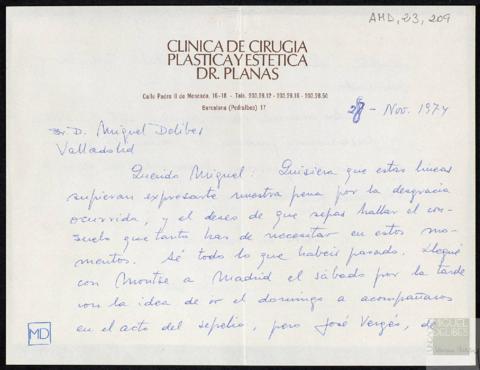 AMD, 23, 209
CLINICA DE CIRUGIA
PLASTICA Y ESTETICA
DR. PLANAS
Calle Pedro II de Moncada, 16-18 - Tels. 203.28.12 - 203.28.16 - 203.28.50
Barcelona (Pedralbes) 17
28 - Nov. 1974
Sr. D. Miguel Delibes
Valladolid
Querido Miguel: Quisiera que estas lineas
supieran expresarte nuestra pena por la desgracia
ocurrida, y el deseo de que sepas hallar el con-
suelo que tanto has de necesitar en estos mo-
mentos. Sé todo lo que habeis pasado. Llegué
con Montse a Madrid el sábado por la tarde
con la idea de ir el domingo a acompañaros
en el acto del sepelio, pero José Vergés, de
MD
MIGUEL
DELIBES